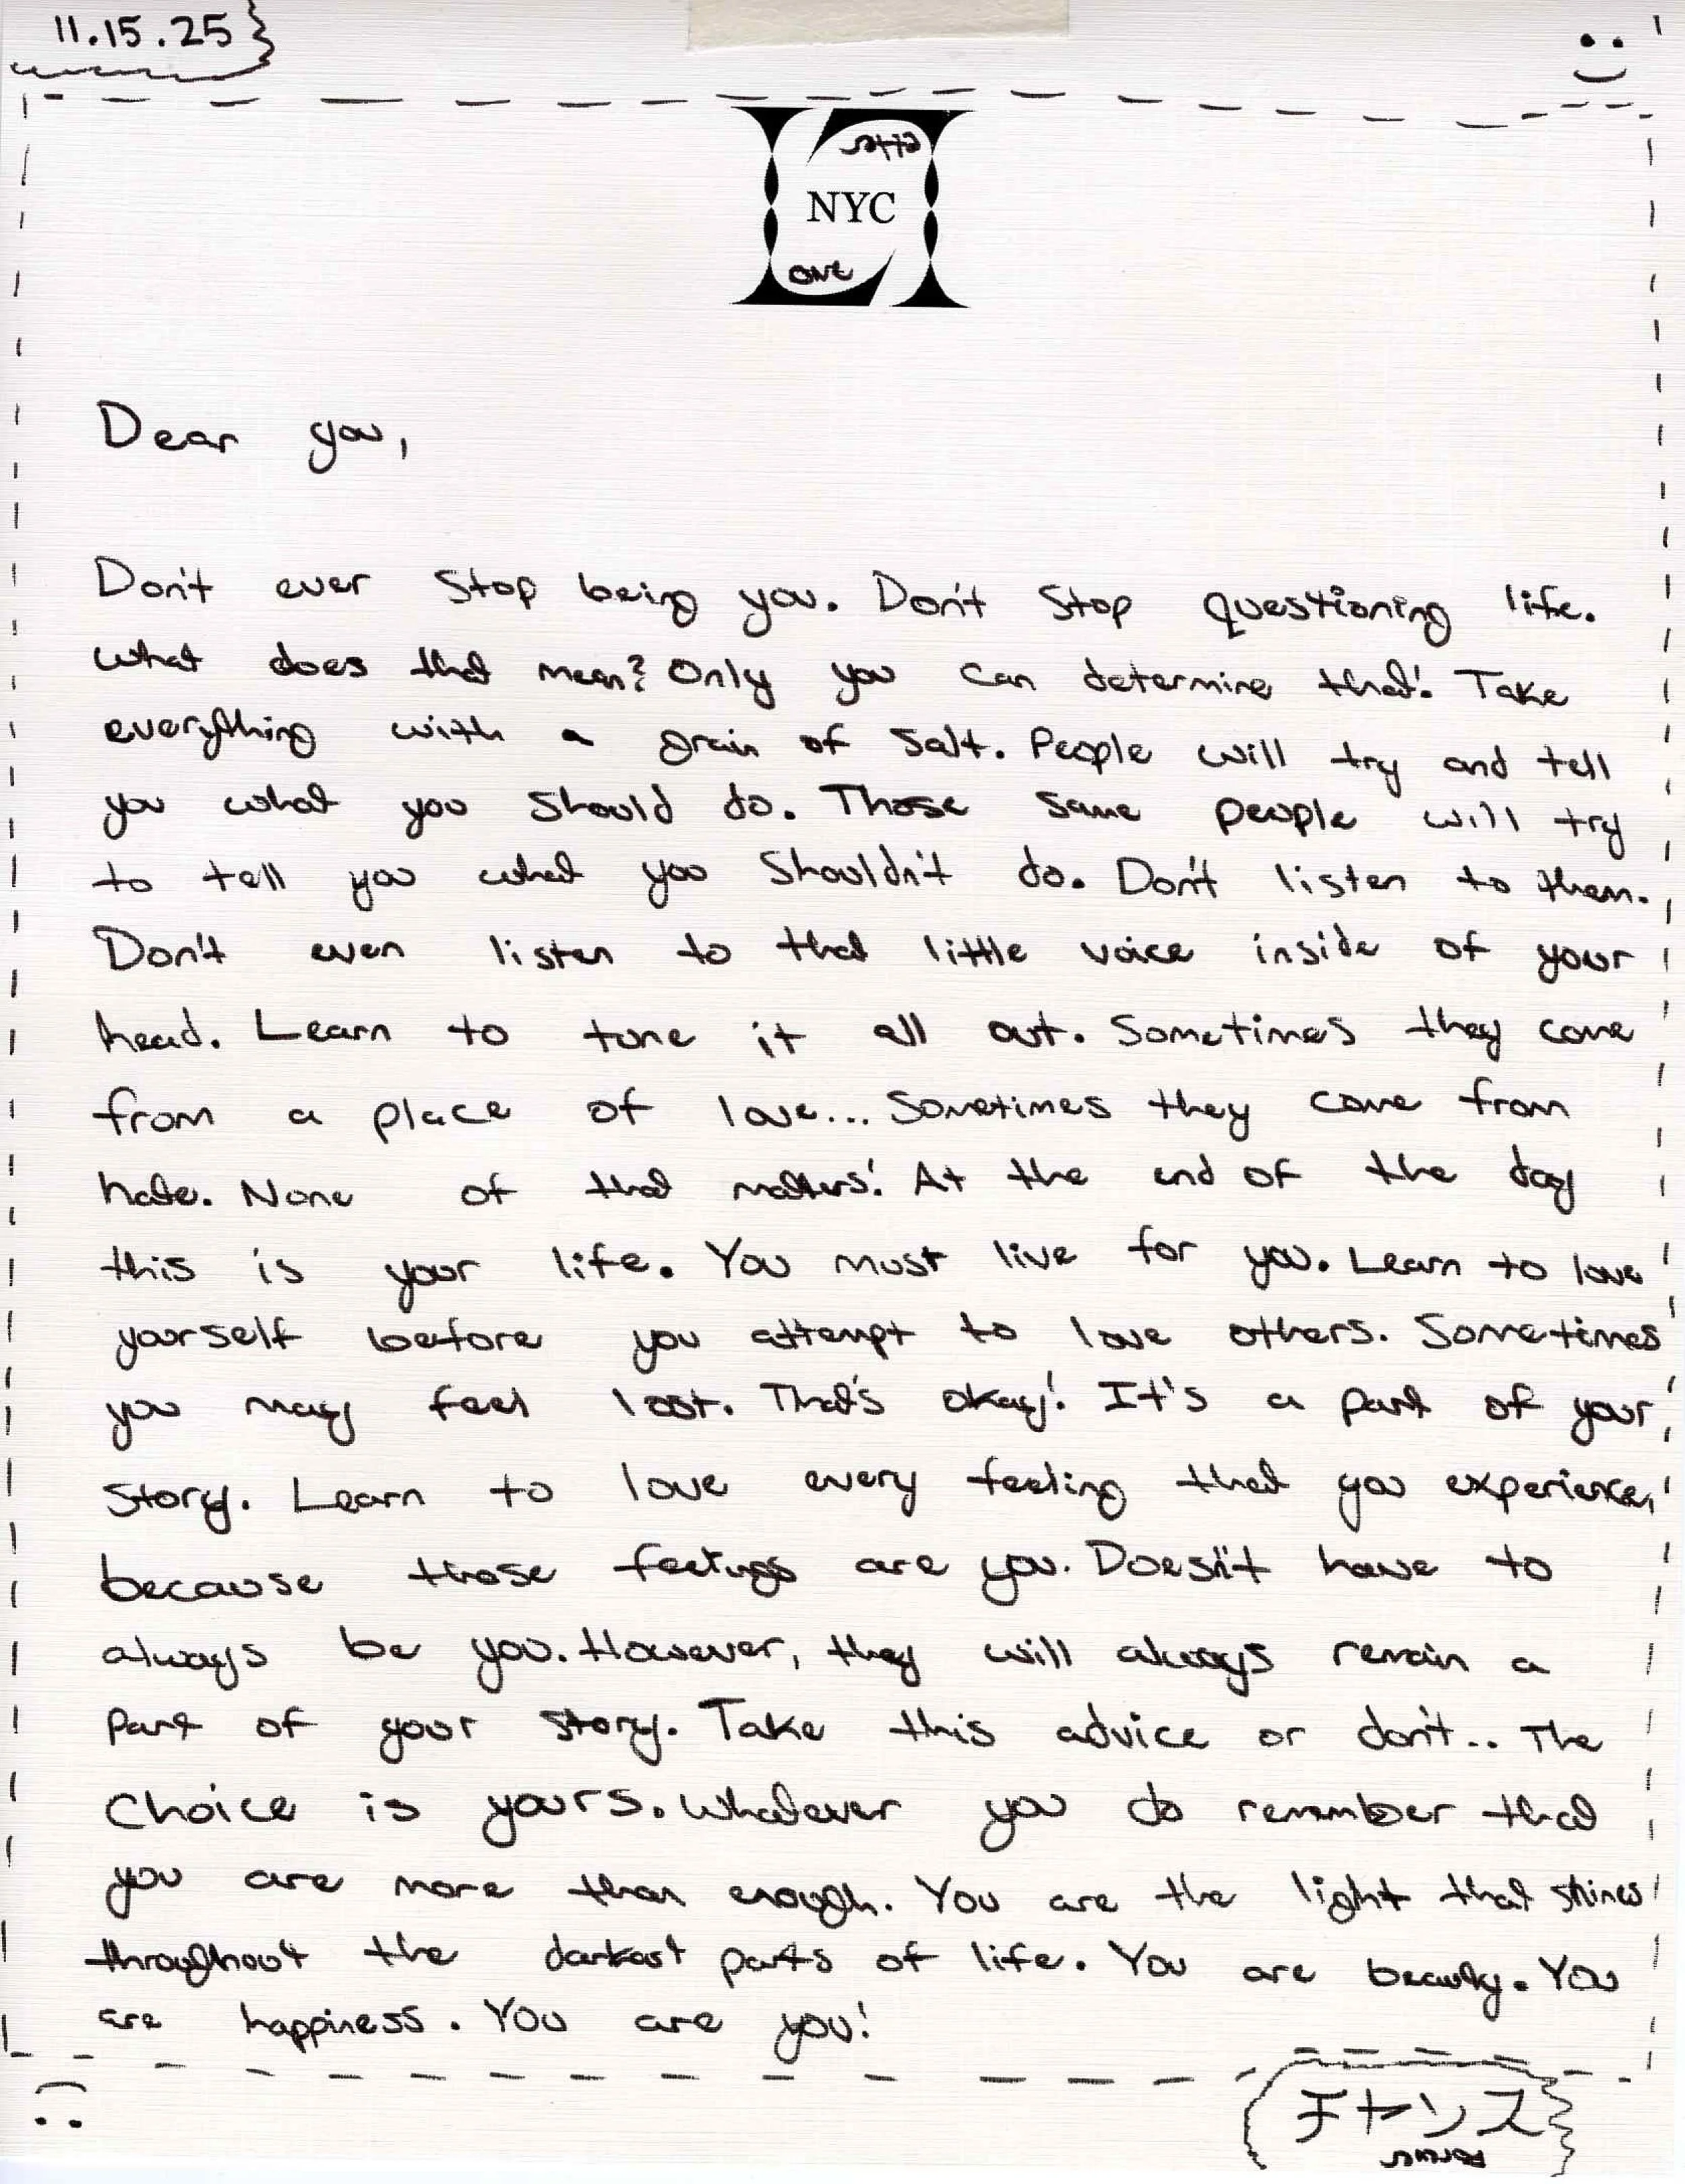 11.15.25
NYC
one
Dear you,
Don't ever stop being you. Don't stop questioning life.
What does that mean? Only you can determine that! Take
everything with a grain of salt. People will try and tell
you what you should do. Those same people will try
to tell you what you shouldn't do. Don't listen to them.
Don't even listen to that little voice inside of your
head. Learn to tune it all out. Sometimes they come
from a place of love... Sometimes they come from
hate. None of that matters! At the end of the day
this is your life. You must live for you. Learn to love
yourself before you attempt to love others. Sometimes
you may feel lost. That's okay! It's a part of your
story. Learn to love every feeling that you experience,
because those feelings are you. Doesn't have to
always be you. However, they will always remain a
part of your story. Take this advice or don't.. The
choice is yours. Whatever you do remember that
you are more than enough. You are the light that shines
throughout the darkest parts of life. You are beauty. You
are happiness. You are you!
チャンス